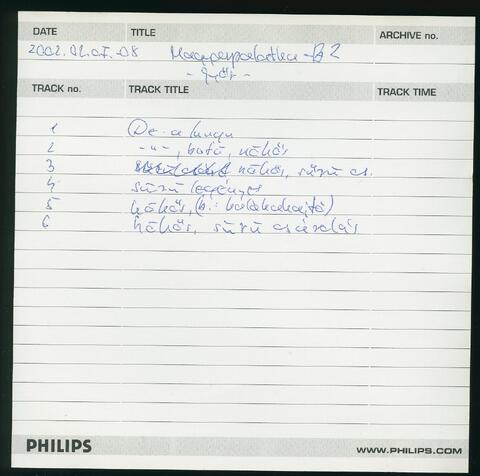 DATE TITLE ARCHIVE no.
2002.02.07-08 Magyarpalatka - B2
- Győr -
TRACK no. TRACK TITLE TRACK TIME
1 De-a lungu
2 -u-, botă, kökös
3 kökös, sűrű cs.
4 sűrű legényes
5 kökös, (h.:
6 kökös, sűrű csárdás
PHILIPS WWW.PHILIPS.COM